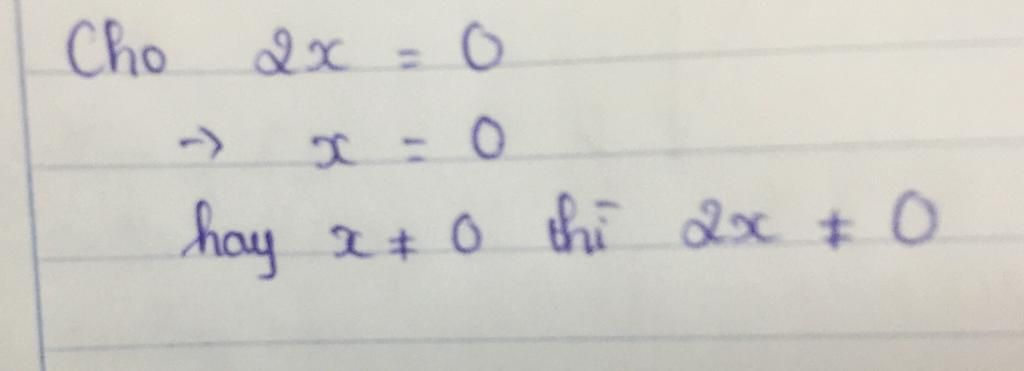 Cho 2x = 0
→ x = 0
hay x ≠ 0 thì 2x ≠ 0